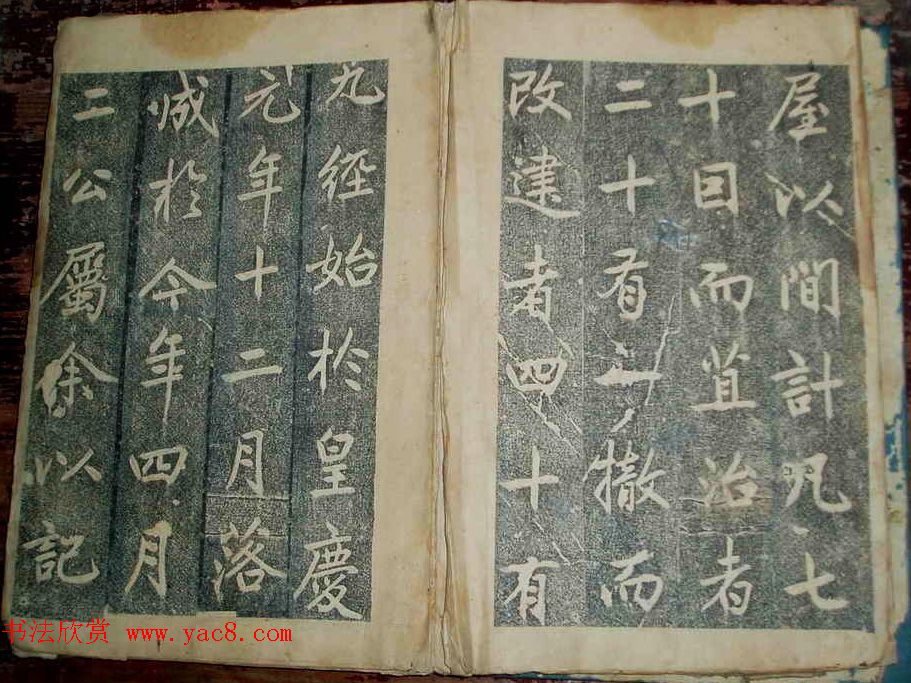 屋以間計凡七
十曰而葺治者
二十有二撤而
改建者四十有
九經始於皇慶
元年十二月落
成於今年四月
二公屬余以記
书法欣赏 www.yac8.com